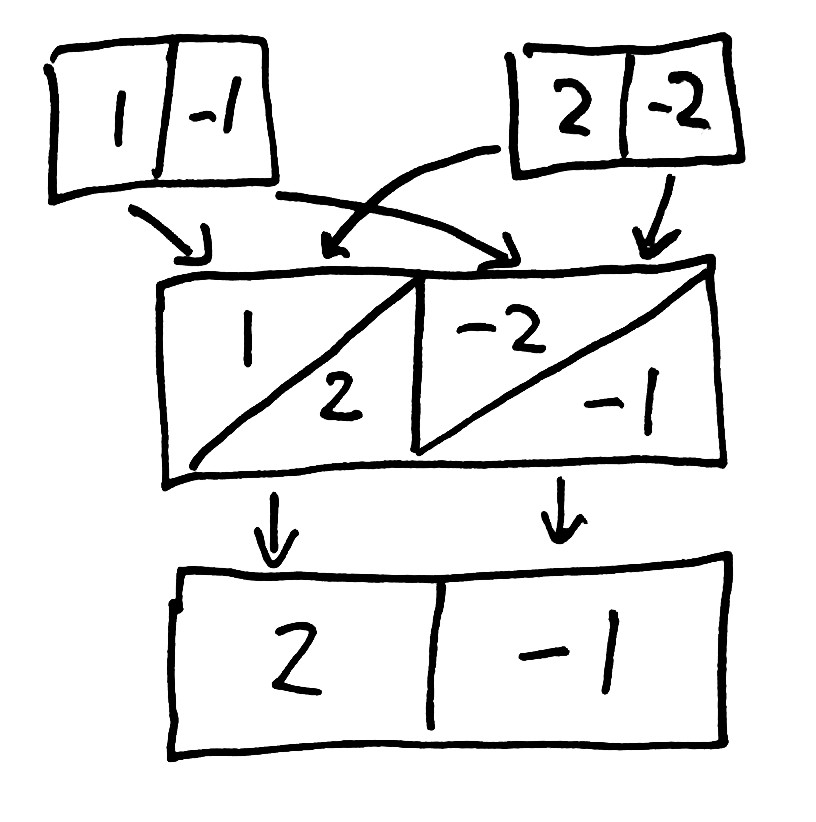 1 -1 2 -2
1 -2
2 -1
2 -1